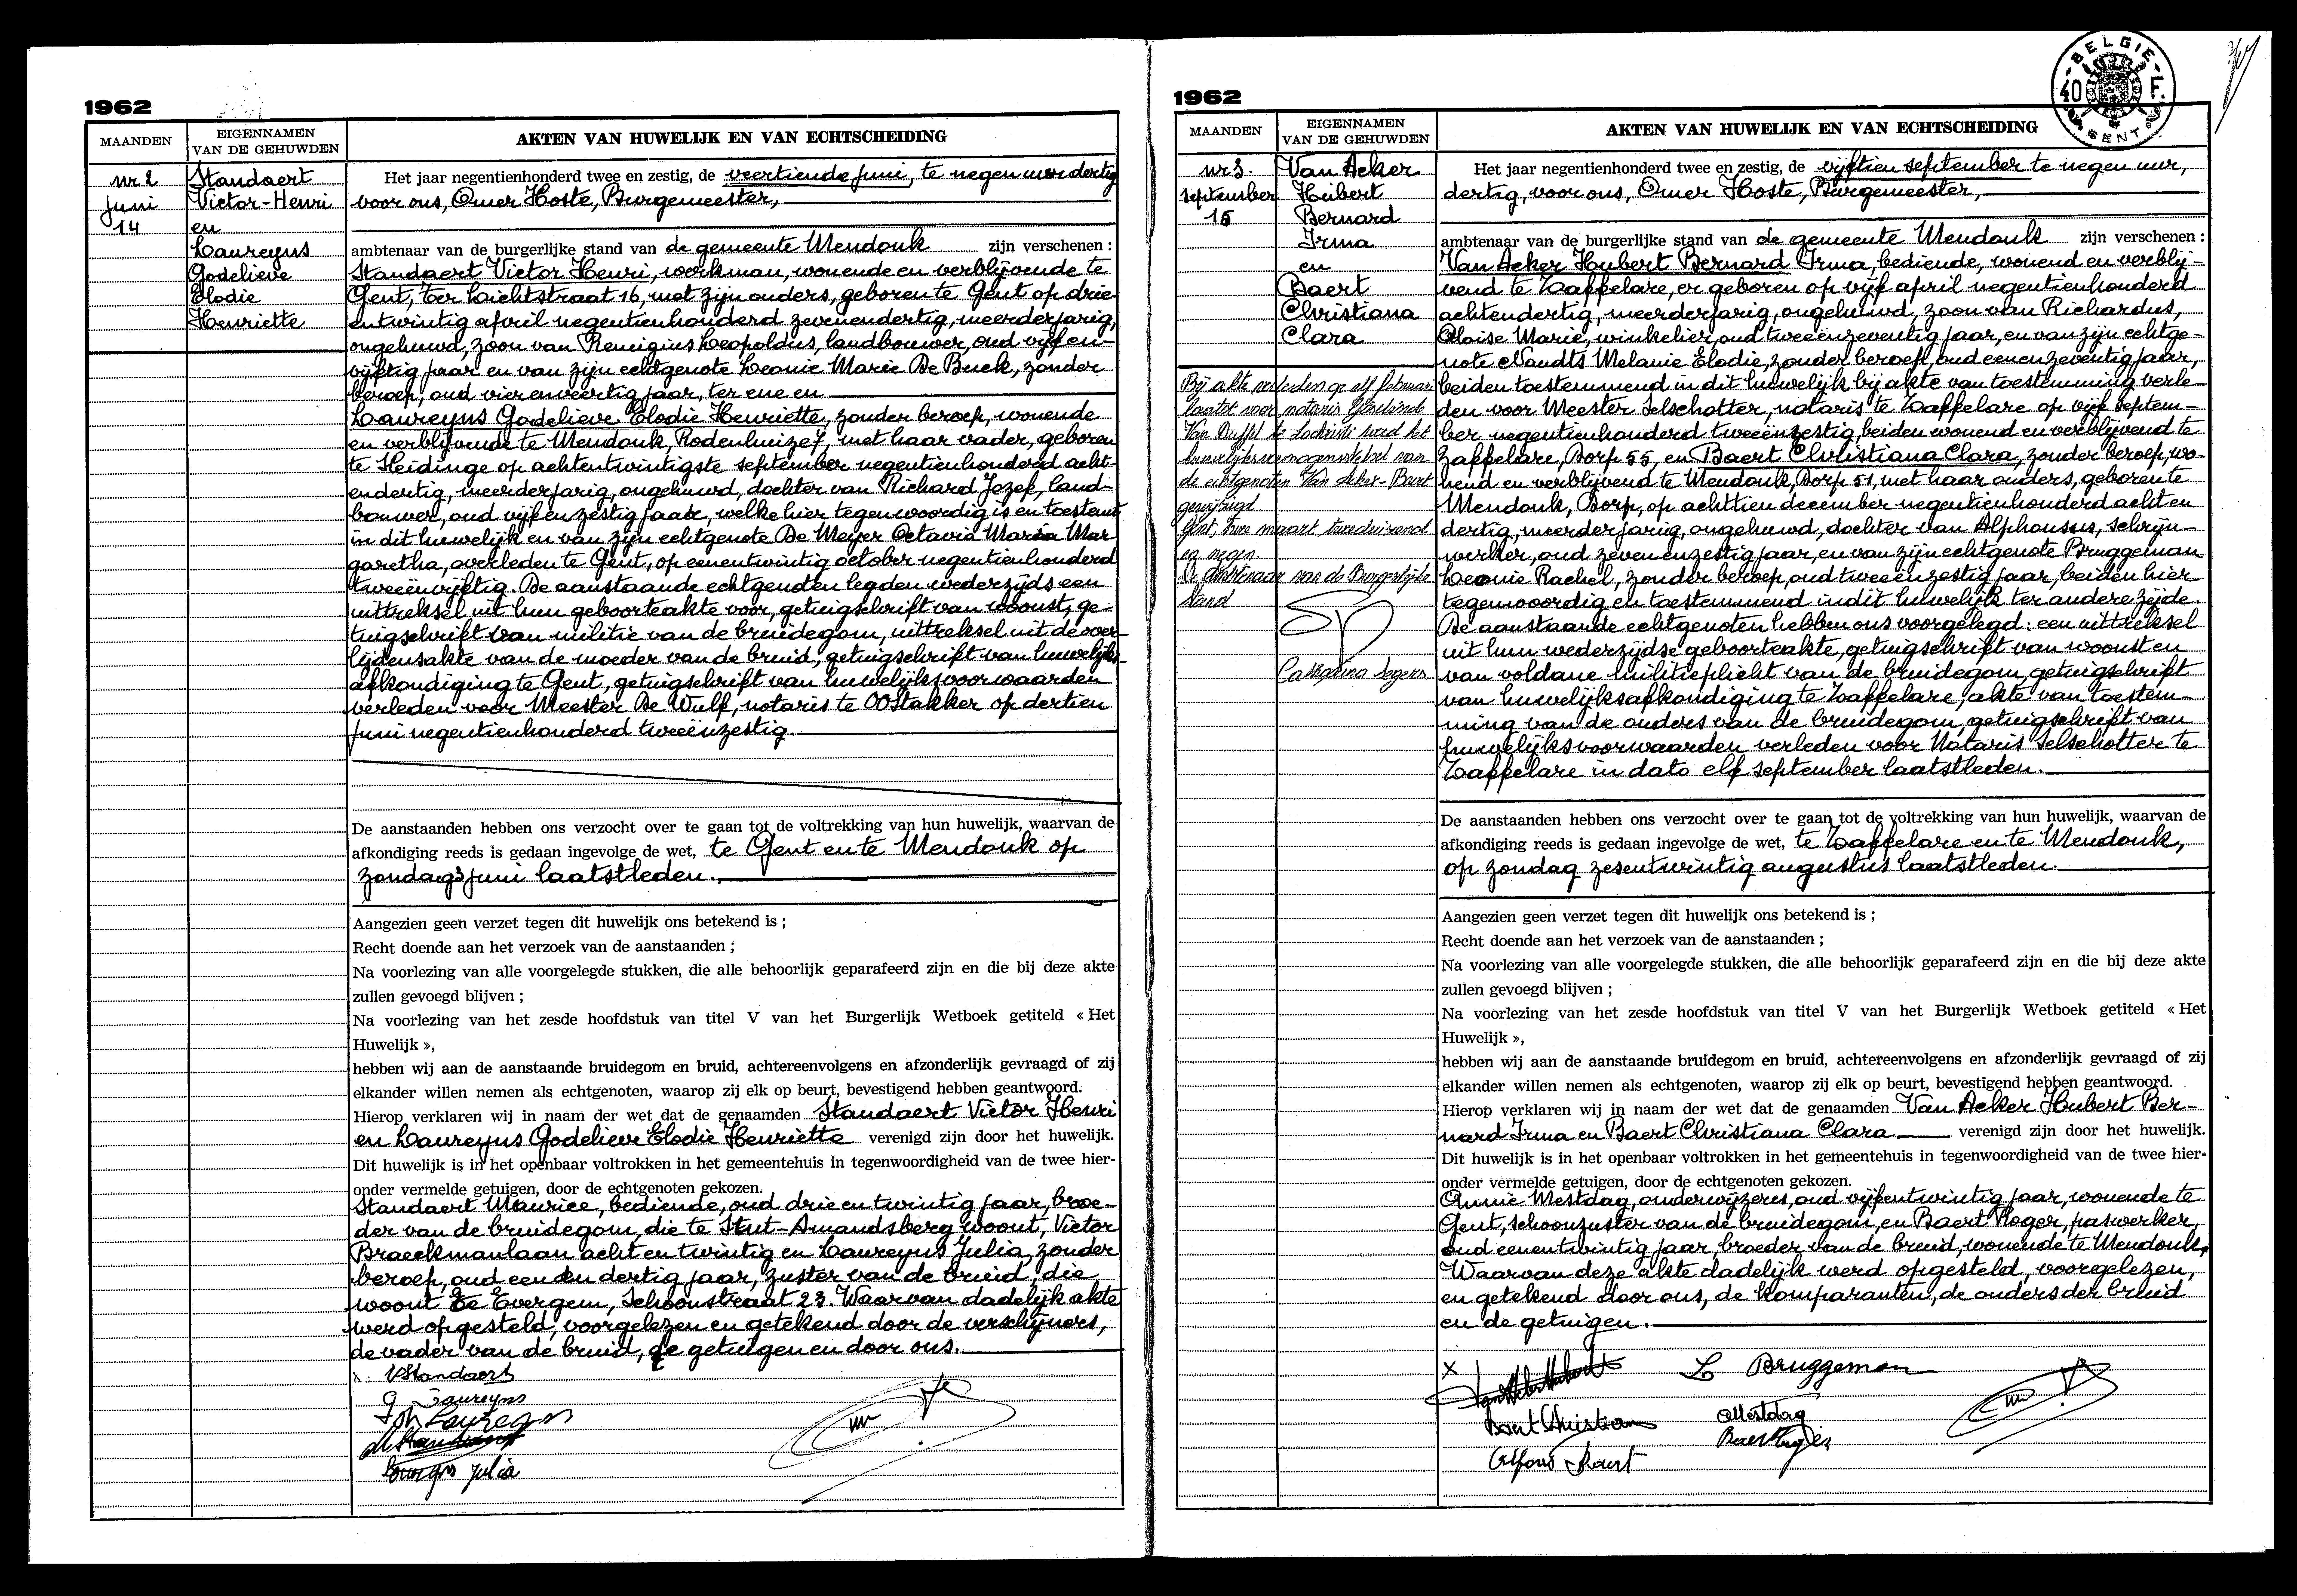 1962
MAANDEN
EIGENNAMEN
VAN DE GEHUWDEN
AKTEN VAN HUWELIJK EN VAN ECHTSCHEIDING
nr 2
Juni
14
Standaert
Victor-Henri
en
Laureyns
Godelieve
Elodie
Henriette
Het jaar negentienhonderd twee en zestig, de veertiende juni, te negen uur dertig
voor ons, Omer Hoste, Burgemeester,
ambtenaar van de burgerlijke stand van de gemeente Mendonk zijn verschenen :
Standaert Victor Henri, werkman, wonende en verblijvende te
Gent, Ter Lichtstraat 16, met zijn ouders, geboren te Gent op drie
entwintig april negentienhonderd zevenendertig, meerderjarig,
ongehuwd, zoon van Remigius Leopoldus, landbouwer, oud vijf en-
vijftig jaar en van zijn echtgenote Leonie Marie De Buck, zonder
beroep, oud vierenveertig jaar, ter ene en
Laureyns Godelieve Elodie Henriette, zonder beroep, wonende
en verblijvende te Mendonk, Rodenhuize 7, met haar vader, geboren
te Sleidinge op achtentwintigste september negentienhonderd acht-
endertig, meerderjarig, ongehuwd, dochter van Richard Jozef, land-
bouwer, oud vijfenzestig jaar, welke hier tegenwoordig is en toestemt
in dit huwelijk en van zijn echtgenote De Meyer Octavia Maria Mar-
garetha, overleden te Gent, op eenentwintig october negentienhonderd
tweeënvijftig. De aanstaande echtgenoten legden wederzijds een
uittreksel uit hun geboorteakte voor, getuigschrift van woonst, ge-
tuigschrift van militie van de bruidegom, uittreksel uit de over-
lijdensakte van de moeder van de bruid, getuigschrift van huwelijks-
afkondiging te Gent, getuigschrift van huwelijksvoorwaarden
verleden voor Meester De Wulf, notaris te OOstakker op dertien
juni negentienhonderd tweeënzestig.
De aanstaanden hebben ons verzocht over te gaan tot de voltrekking van hun huwelijk, waarvan de
afkondiging reeds is gedaan ingevolge de wet, te Gent en te Mendonk op
zondag 3 juni laatstleden.
Aangezien geen verzet tegen dit huwelijk ons betekend is ;
Recht doende aan het verzoek van de aanstaanden ;
Na voorlezing van alle voorgelegde stukken, die alle behoorlijk geparafeerd zijn en die bij deze akte
zullen gevoegd blijven ;
Na voorlezing van het zesde hoofdstuk van titel V van het Burgerlijk Wetboek getiteld « Het
Huwelijk »,
hebben wij aan de aanstaande bruidegom en bruid, achtereenvolgens en afzonderlijk gevraagd of zij
elkander willen nemen als echtgenoten, waarop zij elk op beurt, bevestigend hebben geantwoord.
Hierop verklaren wij in naam der wet dat de genaamden Standaert Victor Henri
en Laureyns Godelieve Elodie Henriette verenigd zijn door het huwelijk.
Dit huwelijk is in het openbaar voltrokken in het gemeentehuis in tegenwoordigheid van de twee hier-
onder vermelde getuigen, door de echtgenoten gekozen.
Standaert Maurice, bediende, oud drie en twintig jaar, broe-
der van de bruidegom, die te Sint-Amandsberg woont, Victor
Braeckmanlaan acht en twintig en Laureyns Julia, zonder
beroep, oud een en dertig jaar, zuster van de bruid, die
woont te Evergem, Schoonstraat 23. Waarvan dadelijk akte
werd opgesteld, voorgelezen en getekend door de verschijners,
de vader van de bruid, de getuigen en door ons.
x VStandaert
g Laureyns
Laureyns
Laureyns Julia
1962
BELGIE
40 F.
GENT
MAANDEN
EIGENNAMEN
VAN DE GEHUWDEN
AKTEN VAN HUWELIJK EN VAN ECHTSCHEIDING
nr 3.
september
15
Van Acker
Hubert
Bernard
Irma
en
Baert
Christiana
Clara
Bij akte verleden op elf februari
laatst voor notaris
Van Duffel te Lochristi werd het
huwelijksvermogenstelsel van
de echtgenoten Van Acker-Baert
gewijzigd
Gent, twee maart tweeduizend
en negen.
De ambtenaar van de Burgerlijke
Stand
Catharina Segers
Het jaar negentienhonderd twee en zestig, de vijftien september te negen uur,
dertig, voor ons, Omer Hoste, Burgemeester,
ambtenaar van de burgerlijke stand van de gemeente Mendonk zijn verschenen :
Van Acker Hubert Bernard Irma, bediende, wonend en verblij-
vend te Zaffelare, er geboren op vijf april negentienhonderd
achtendertig, meerderjarig, ongehuwd, zoon van Richardus,
Aloise Marie, winkelier, oud tweeënzeventig jaar, en van zijn echtge-
note Naudts Melanie Elodie, zonder beroep, oud eenenzeventig jaar,
beiden toestemmend in dit huwelijk bij akte van toestemming verle-
den voor Meester Selschotter, notaris te Zaffelare op vijf septem-
ber negentienhonderd tweeënzestig, beiden wonend en verblijvend te
Zaffelare, Dorp 55, en Baert Christiana Clara, zonder beroep, wo-
nend en verblijvend te Mendonk, Dorp 51, met haar ouders, geboren te
Mendonk, Dorp, op achttien december negentienhonderd acht en
dertig, meerderjarig, ongehuwd, dochter van Alphonsus, schrijn-
werker, oud zevenenzestig jaar, en van zijn echtgenote Bruggeman
Leonie Rachel, zonder beroep, oud tweeënzestig jaar, beiden hier
tegenwoordig en toestemmend in dit huwelijk ter andere zijde.
De aanstaande echtgenoten hebben ons voorgelegd : een uittreksel
uit hun wederzijdse geboorteakte, getuigschrift van woonst en
van voldane militieplicht van de bruidegom, getuigschrift
van huwelijksafkondiging te Zaffelare, akte van toestem-
ming van de ouders van de bruidegom, getuigschrift van
huwelijksvoorwaarden verleden voor Notaris Selschotter te
Zaffelare in dato elf september laatstleden.
De aanstaanden hebben ons verzocht over te gaan tot de voltrekking van hun huwelijk, waarvan de
afkondiging reeds is gedaan ingevolge de wet, te Zaffelare en te Mendonk,
op zondag zesentwintig augustus laatstleden.
Aangezien geen verzet tegen dit huwelijk ons betekend is ;
Recht doende aan het verzoek van de aanstaanden ;
Na voorlezing van alle voorgelegde stukken, die alle behoorlijk geparafeerd zijn en die bij deze akte
zullen gevoegd blijven ;
Na voorlezing van het zesde hoofdstuk van titel V van het Burgerlijk Wetboek getiteld « Het
Huwelijk »,
hebben wij aan de aanstaande bruidegom en bruid, achtereenvolgens en afzonderlijk gevraagd of zij
elkander willen nemen als echtgenoten, waarop zij elk op beurt, bevestigend hebben geantwoord.
Hierop verklaren wij in naam der wet dat de genaamden Van Acker Hubert Ber-
nard Irma en Baert Christiana Clara verenigd zijn door het huwelijk.
Dit huwelijk is in het openbaar voltrokken in het gemeentehuis in tegenwoordigheid van de twee hier-
onder vermelde getuigen, door de echtgenoten gekozen.
Annie Mestdag, onderwijzeres, oud vijfentwintig jaar, wonende te
Gent, schoonzuster van de bruidegom, en Baert Roger, paswerker,
oud eenentwintig jaar, broeder van de bruid, wonende te Mendonk,
Waarvan deze akte dadelijk werd opgesteld, voorgelezen,
en getekend door ons, de komparanten, de ouders der bruid
en de getuigen.
x Van Acker Hubert
L Bruggeman
Baert Christiana
AMestdag
Baert Roger
Alfons Baert